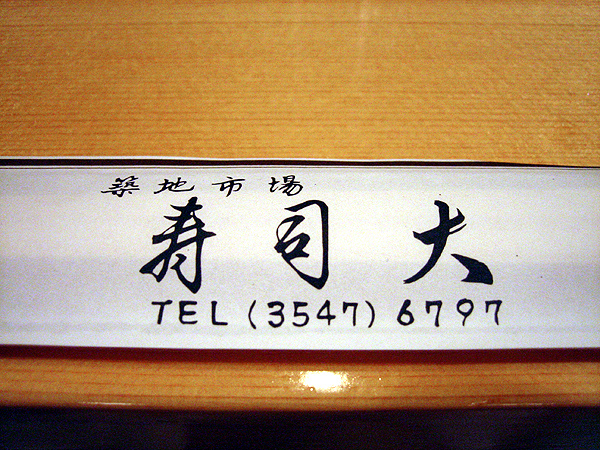 築地市場
寿司大
TEL (3547) 6797